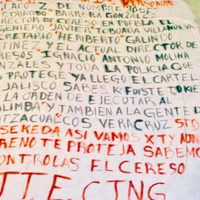 DE NOMBRE JOSE
BARRERA GONZALEZ
DIRECTOR DE CERESO EN PUEBLA EL
JAVIER TOBUADA VILLANUE
SECRETARIO HERIBERTO GALIN
TINEZ Y EL ACTUAL DIRECTOR DE
RESOS IGNACIO ANTONIO MOLINA
ALES Y TODA LA POLICIA QUE
PROTEGE YA LLEGO EL CARTEL
JALISCO SABES K FUISTE TOKIE
LA ORDEN DE EJECUTAR AL
ALIMBA Y TAMBIEN A LA GENTE D
TZACUALCOS VERACRUZ STO
SE KEDA ASI VAMOS X TY AUN
RENO TE PROTEJA SABEMO
CONTROLAS EL CERESO
T.T.E. CJNG